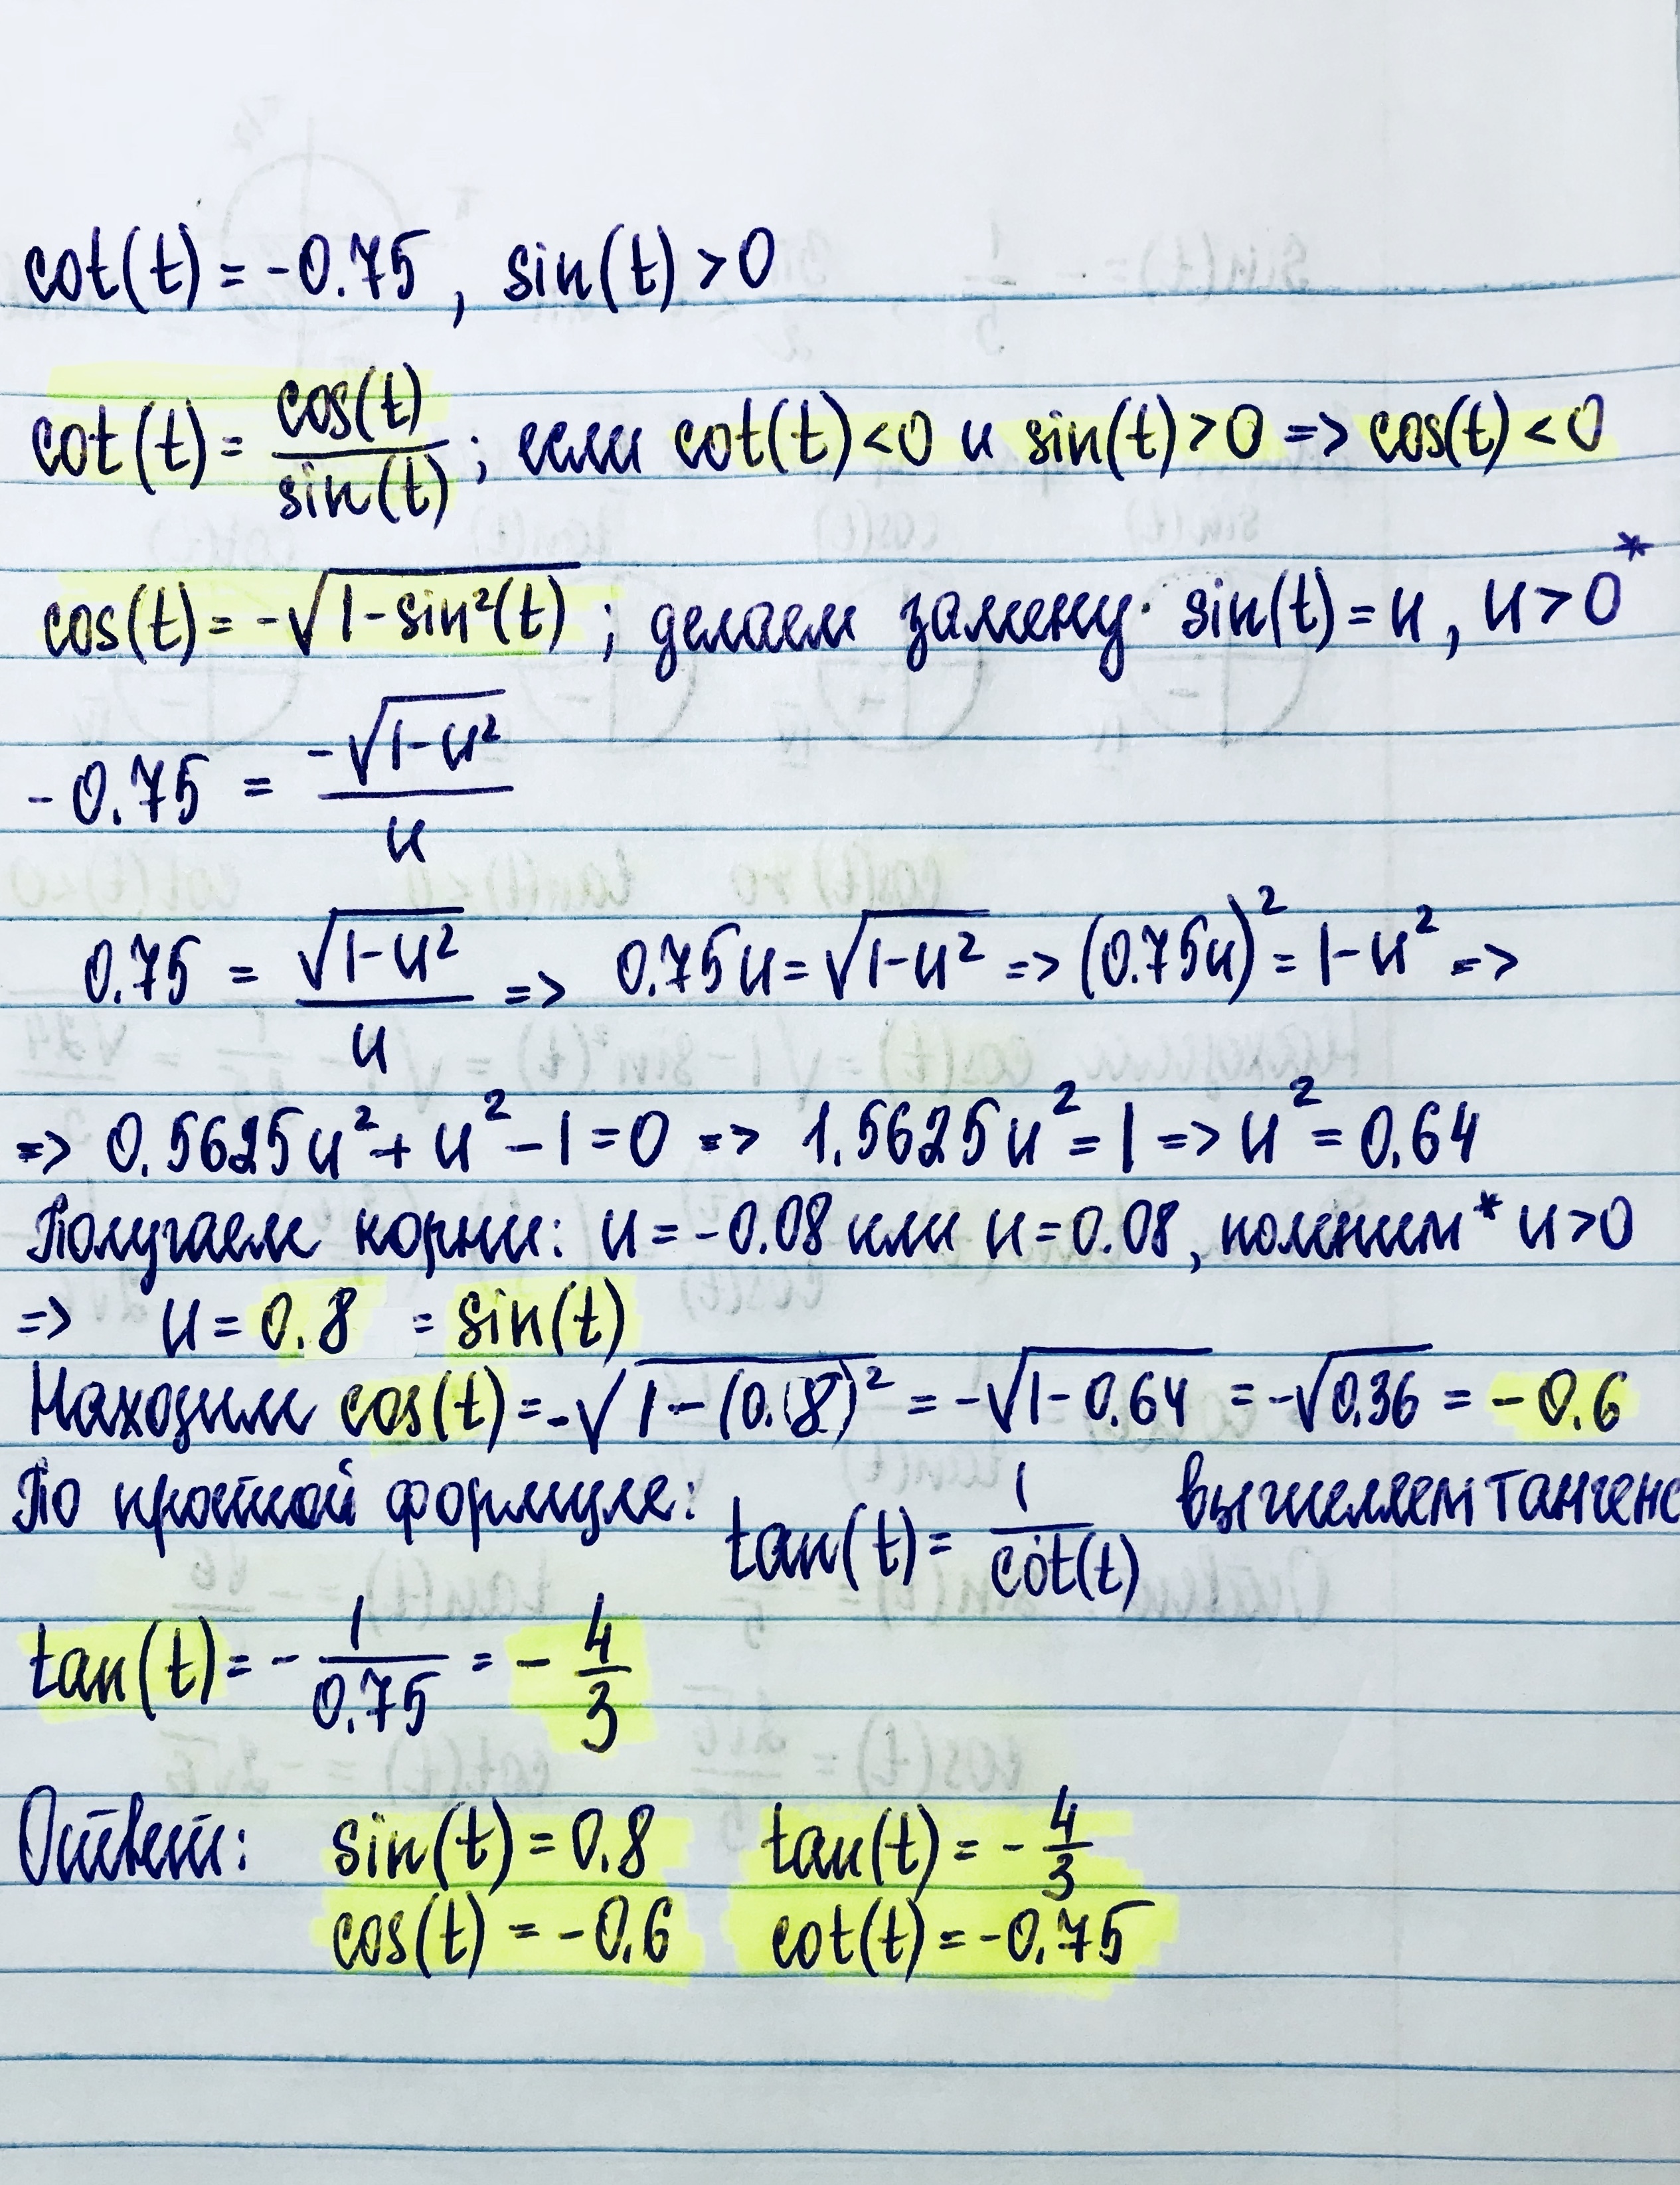 cot(t) = -0.75, sin(t) > 0
cot(t) = cos(t)/sin(t); если cot(t) < 0 и sin(t) > 0 => cos(t) < 0
cos(t) = -√(1-sin²(t)); делаем замену· sin(t) = u, u > 0*
-0.75 = -√(1-u²)/u
0.75 = √(1-u²)/u => 0.75u = √(1-u²) => (0.75u)² = 1-u² =>
=> 0.5625u² + u² - 1 = 0 => 1.5625u² = 1 => u² = 0.64
Получаем корни: u = -0.08 или u = 0.08, помним * u > 0
=> u = 0.8 = sin(t)
Находим cos(t) = -√(1-(0.8)²) = -√(1-0.64) = -√0.36 = -0.6
По простой формуле: tan(t) = 1/cot(t) вычисляем тангенс
tan(t) = -1/0.75 = -4/3
Ответ: sin(t) = 0.8 tan(t) = -4/3
cos(t) = -0.6 cot(t) = -0.75